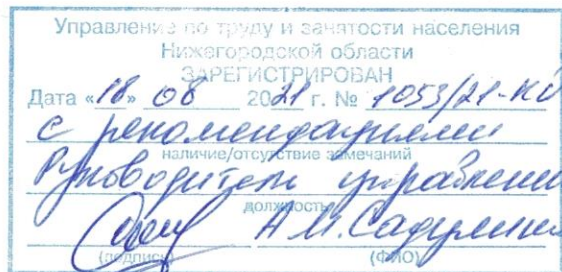 Управление по труду и занятости населения
Нижегородской области
ЗАРЕГИСТРИРОВАН
Дата «18» 08 2021 г. № 1053/21-КД
с рекомендациями
наличие/отсутствие замечаний
Руководитель управления
должность
А.М.
(подпись) (ФИО)